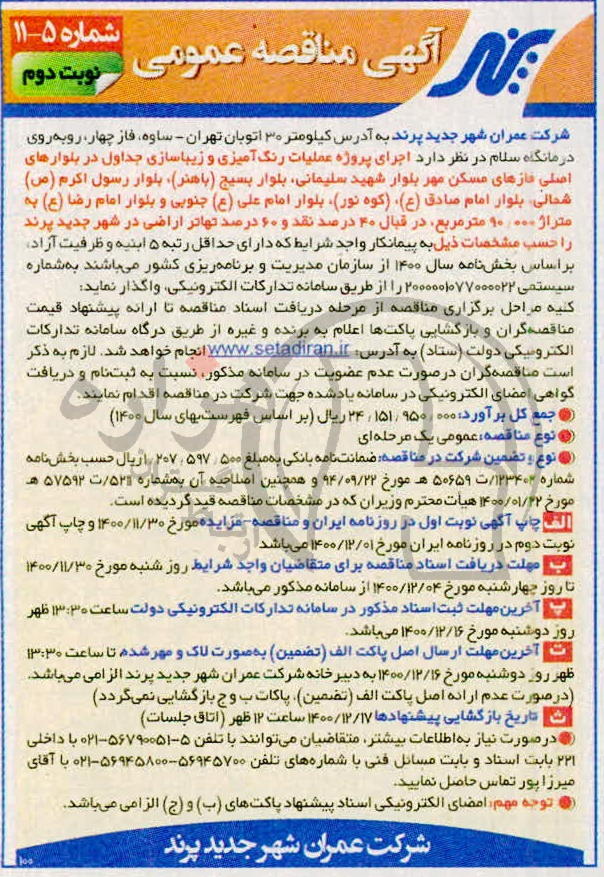 شماره ۵-۱۱
نوبت دوم
آگهی مناقصه عمومی
پرند
شرکت عمران شهر جدید پرند به آدرس کیلومتر ۳۰ اتوبان تهران - ساوه، فاز چهار، روبه‌روی
درمانگاه سلام در نظر دارد اجرای پروژه عملیات رنگ‌آمیزی و زیباسازی جداول در بلوارهای
اصلی فازهای مسکن مهر بلوار شهید سلیمانی، بلوار بسیج (باهنر)، بلوار رسول اکرم (ص)
شمالی، بلوار امام صادق (ع)، (کوه نور)، بلوار امام علی (ع) جنوبی و بلوار امام رضا (ع) به
متراژ ۹۰,۰۰۰ مترمربع، در قبال ۴۰ درصد نقد و ۶۰ درصد تهاتر اراضی در شهر جدید پرند
را حسب مشخصات ذیل به پیمانکار واجد شرایط که دارای حداقل رتبه ۵ ابنیه و ظرفیت آزاد،
براساس بخش‌نامه سال ۱۴۰۰ از سازمان مدیریت و برنامه‌ریزی کشور می‌باشند به‌شماره
سیستمی ۲۰۰۰۰۰۱۰۷۷۰۰۰۰۲۲ را از طریق سامانه تدارکات الکترونیکی، واگذار نماید:
کلیه مراحل برگزاری مناقصه از مرحله دریافت اسناد مناقصه تا ارائه پیشنهاد قیمت
مناقصه‌گران و بازگشایی پاکت‌ها اعلام به برنده و غیره از طریق درگاه سامانه تدارکات
الکترونیکی دولت (ستاد) به آدرس: www.setadiran.ir انجام خواهد شد. لازم به ذکر
است مناقصه‌گران درصورت عدم عضویت در سامانه مذکور، نسبت به ثبت‌نام و دریافت
گواهی امضای الکترونیکی در سامانه یادشده جهت شرکت در مناقصه اقدام نمایند.
جمع کل برآورد: ۲۴,۱۵۱,۹۵۰,۰۰۰ ریال (بر اساس فهرست‌بهای سال ۱۴۰۰)
نوع مناقصه: عمومی یک مرحله‌ای
نوع و تضمین شرکت در مناقصه: ضمانت‌نامه بانکی به‌مبلغ ۱,۲۰۷,۵۹۷,۵۰۰ ریال حسب بخش‌نامه
شماره ۱۲۳۴۰۲/ت ۵۰۶۵۹ هـ مورخ ۹۴/۰۹/۲۲ و همچنین اصلاحیه آن به‌شماره ۵۲۱/ت ۵۷۵۹۲ هـ
مورخ ۱۴۰۰/۰۱/۲۲ هیأت محترم وزیران که در مشخصات مناقصه قید گردیده است.
الف چاپ آگهی نوبت اول در روزنامه ایران و مناقصه-مزایده مورخ ۱۴۰۰/۱۱/۳۰ و چاپ آگهی
نوبت دوم در روزنامه ایران مورخ ۱۴۰۰/۱۲/۰۱ می‌باشد
ب مهلت دریافت اسناد مناقصه برای متقاضیان واجد شرایط، روز شنبه مورخ ۱۴۰۰/۱۱/۳۰
تا روز چهارشنبه مورخ ۱۴۰۰/۱۲/۰۴ از سامانه مذکور می‌باشد.
پ آخرین مهلت ثبت اسناد مذکور در سامانه تدارکات الکترونیکی دولت ساعت ۱۳:۳۰ ظهر
روز دوشنبه مورخ ۱۴۰۰/۱۲/۱۶ می‌باشد.
ت آخرین مهلت ارسال اصل پاکت الف (تضمین) به‌صورت لاک و مهر شده، تا ساعت ۱۳:۳۰
ظهر روز دوشنبه مورخ ۱۴۰۰/۱۲/۱۶ به دبیرخانه شرکت عمران شهر جدید پرند الزامی می‌باشد.
(درصورت عدم ارائه اصل پاکت الف (تضمین)، پاکات ب و ج بازگشایی نمی‌گردد)
ث تاریخ بازگشایی پیشنهادها ۱۴۰۰/۱۲/۱۷ ساعت ۱۲ ظهر (اتاق جلسات)
درصورت نیاز به اطلاعات بیشتر، متقاضیان می‌توانند با تلفن ۵-۵۶۷۹۰۰۵۱-۰۲۱ با داخلی
۲۲۱ بابت اسناد و بابت مسائل فنی با شماره‌های تلفن ۵۶۹۴۵۷۰۰-۵۶۹۴۵۸۰۰-۰۲۱ با آقای
میرزاپور تماس حاصل نمایید.
توجه مهم: امضای الکترونیکی اسناد پیشنهاد پاکت‌های (ب) و (ج) الزامی می‌باشد.
شرکت عمران شهر جدید پرند